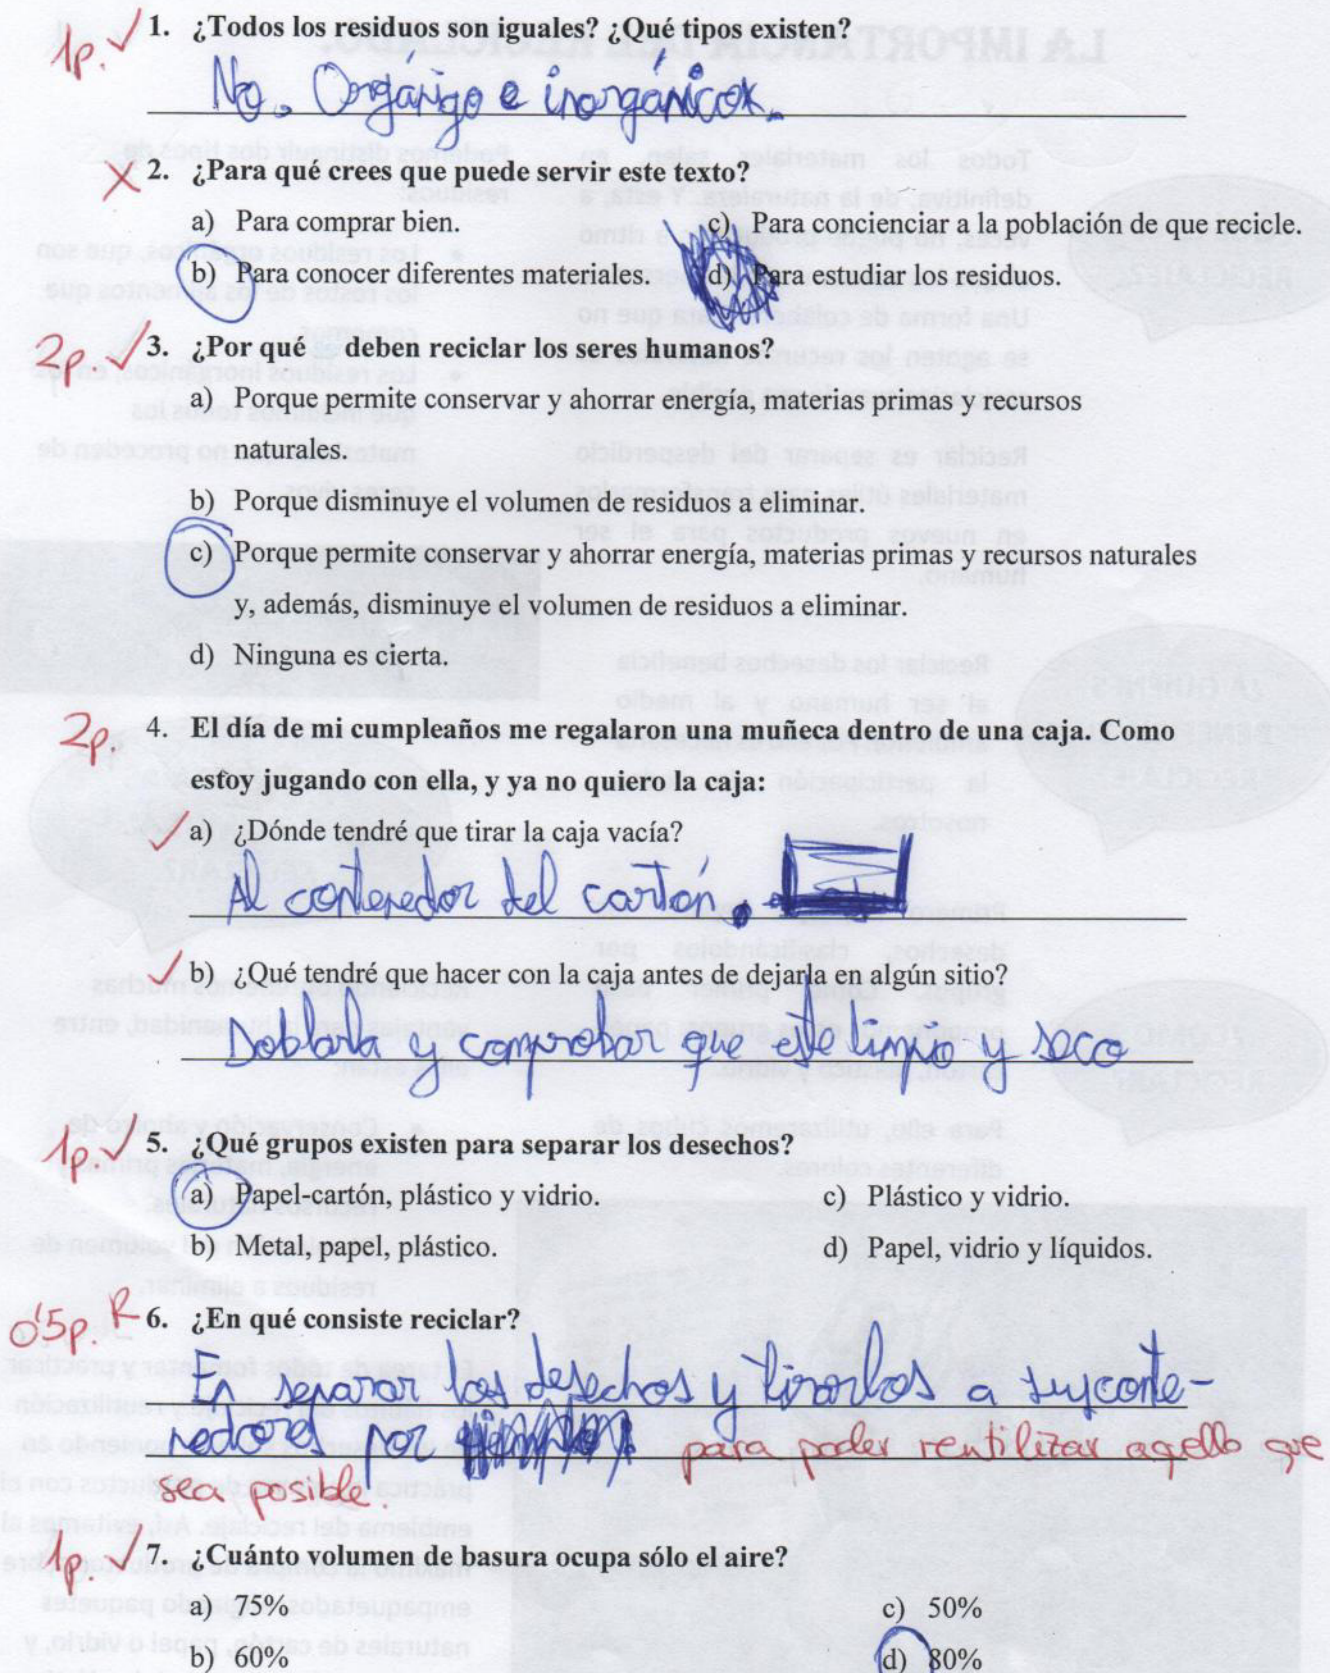 1p. ✓ 1. ¿Todos los residuos son iguales? ¿Qué tipos existen?
No. Orgánigo e inorgánicox.
X 2. ¿Para qué crees que puede servir este texto?
a) Para comprar bien. c) Para concienciar a la población de que recicle.
b) Para conocer diferentes materiales. d) Para estudiar los residuos.
2p. ✓ 3. ¿Por qué deben reciclar los seres humanos?
a) Porque permite conservar y ahorrar energía, materias primas y recursos
naturales.
b) Porque disminuye el volumen de residuos a eliminar.
c) Porque permite conservar y ahorrar energía, materias primas y recursos naturales
y, además, disminuye el volumen de residuos a eliminar.
d) Ninguna es cierta.
2p. 4. El día de mi cumpleaños me regalaron una muñeca dentro de una caja. Como
estoy jugando con ella, y ya no quiero la caja:
✓ a) ¿Dónde tendré que tirar la caja vacía?
Al contenedor del cartón.
✓ b) ¿Qué tendré que hacer con la caja antes de dejarla en algún sitio?
Doblarla y comprobar que este limpio y seco
1p. ✓ 5. ¿Qué grupos existen para separar los desechos?
a) Papel-cartón, plástico y vidrio. c) Plástico y vidrio.
b) Metal, papel, plástico. d) Papel, vidrio y líquidos.
0'5p. R 6. ¿En qué consiste reciclar?
En separar los desechos y tirarlos a suyconte-
nedores por para poder reutilizar aquello que
sea posible.
1p. ✓ 7. ¿Cuánto volumen de basura ocupa sólo el aire?
a) 75% c) 50%
b) 60% d) 80%